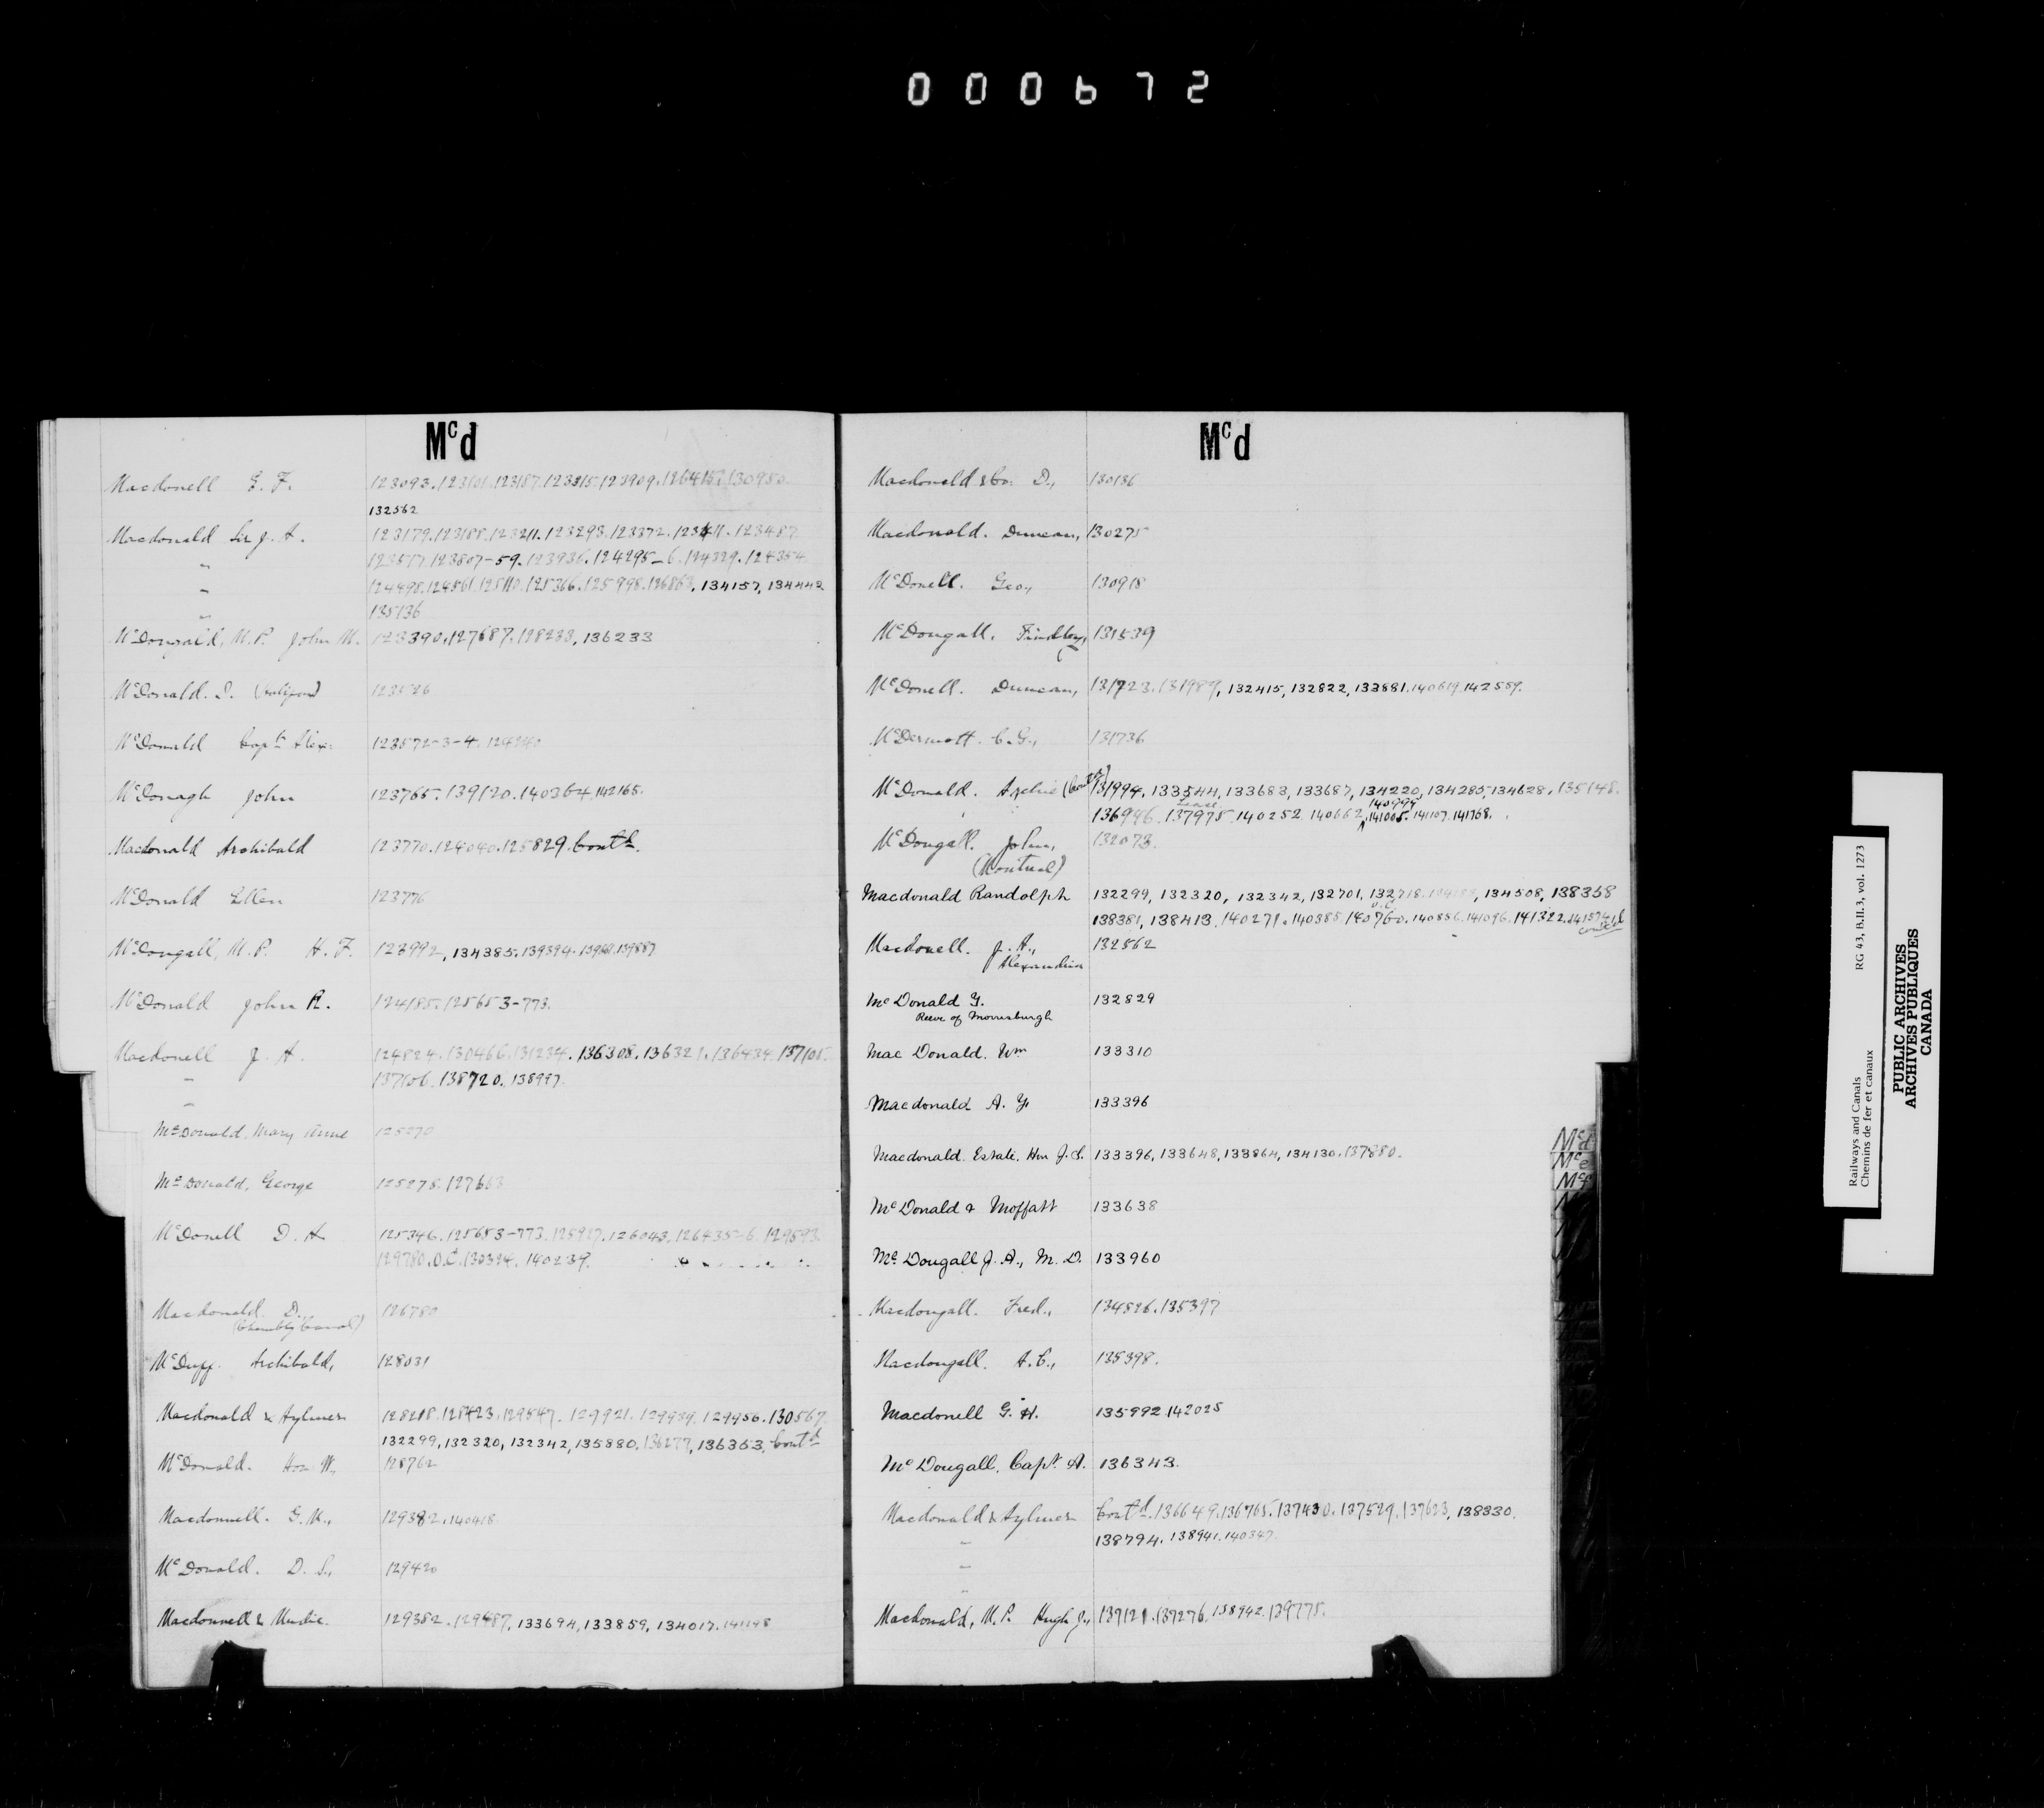 000672
Mcd
Macdonell G. F. 123093.123101.123187.123315.123909.126415.130950.
132562
Macdonald Sir J. A. 123179.123188.123211.123293.123372.123411.123487
" 123577.123807-59.123936.124295-6.124329.124354
" 124498.124561.125110.125366.125998.126863, 134157, 134442
" 135136
McDougald, M.P. John M. 123390.127687.128233, 136233
McDonald. D. 123526
McDonald Capt. Alex. 123572-3-4.
McDonagh John 123765.139120.140364.142165.
Macdonald Archibald 123770.124040.125829. Contd.
McDonald Ellen 123776
McDougall, M.P. H. F. 123992, 134385.139394.139887
McDonald John R. 124185.125653-773.
Macdonell J. A. 124824.130466.131234.136308.136321.136434.137105
" 137106.138720.138997.
"
McDonald, Mary Anne 125270
McDonald, George 125278.127663
McDonell D. A. 125346.125653-773.125927.126043.126435-6.129593
129780.O.C.130324.140239.
Macdonald D., 126780
(Chambly Canal)
McDuff. Archibald, 128031
Macdonald & Aylmer 128218.128423.129547.129921.129939.129956.130567
132299, 132320, 132342, 135880, 136277, 136353, Contd
McDonald. Hon. W., 128762
Macdonnell. G. M., 129382.140418
McDonald. D. S., 129420
Macdonnell & Mudie. 129382.129487, 133694, 133859, 134017.141148
Mcd
Macdonald & Co. D., 130136
Macdonald. Duncan, 130275
McDonell. Geo., 130918
McDougall. Findlay, 131539
McDonell. Duncan, 131723.131989, 132415, 132822, 133881.140619.142559.
McDermott. C. G., 131736
McDonald. Archie 131994, 133544, 133683, 133687, 134220, 134285, 134628.135148.
Lease 140999
136946.137975.140252.140662.141005.141107.141768.
McDougall. John, 132073.
(Montreal)
Macdonald Randolph 132299, 132320, 132342, 132701, 132718, 134508, 138358
O.C.
138381, 138413.140271.140385.140760.140856.141096.141322. contd
Macdonell. J. A., 132562
Alexandria
McDonald G. 132829
Reeve of Morrisburgh
MacDonald. Wm 133310
Macdonald A. G. 133396
Macdonald. Estate. Hon J. S. 133396, 133648, 133864, 134130.137880.
McDonald & Moffatt 133638
McDougall J. A., M. D. 133960
Macdougall. Fred., 134826.135397
Macdougall. A. C., 135398.
Macdonell G. H. 135992.142025
McDougall. Capt. A. 136343.
Macdonald & Aylmer Contd.136649.136765.137430.137529.137623, 138330.
" 138794.138941.140347.
"
"
Macdonald, M.P. Hugh J., 137121.137276.138942.139775.
Mcd
Mce
Mcf
Railways and Canals RG 43, B.II.3, vol. 1273
Chemins de fer et canaux
PUBLIC ARCHIVES
ARCHIVES PUBLIQUES
CANADA